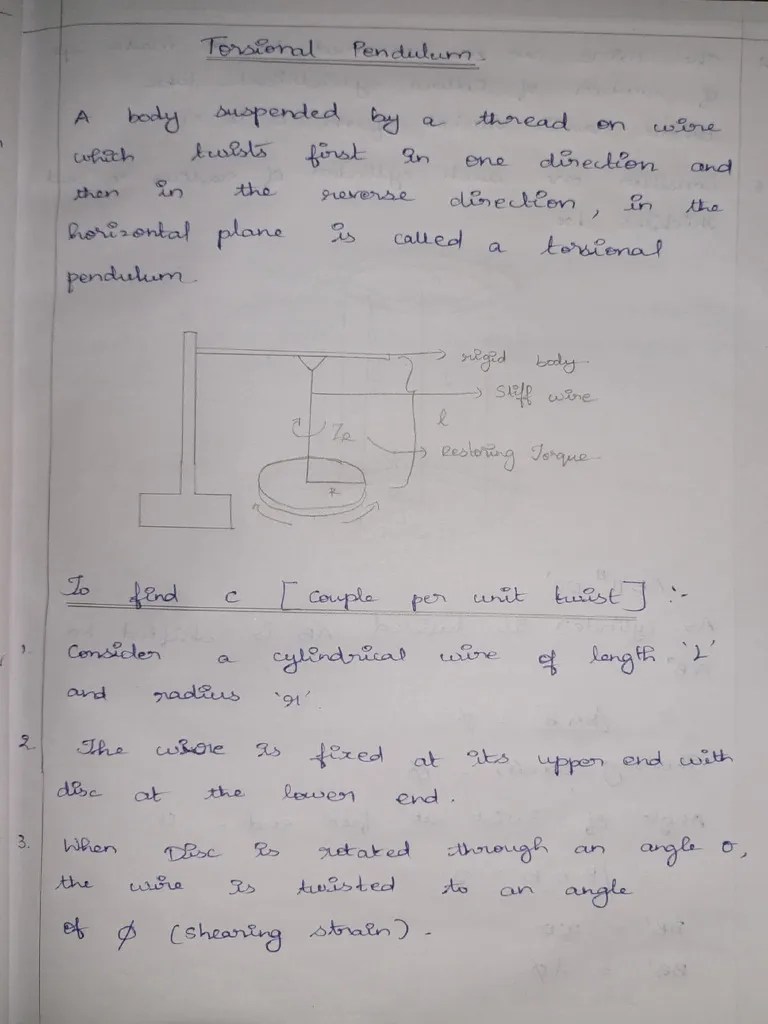 Torsional Pendulum.
A body suspended by a thread on wire
which twists first in one direction and
then in the reverse direction, in the
horizontal plane is called a torsional
pendulum.
rigid body
stiff wire
l
Restoring Torque
R
To find c [couple per unit twist] :-
1. Consider a cylindrical wire of length 'L'
and radius 'r'.
2. The wire is fixed at its upper end with
disc at the lower end.
3. When Disc is rotated through an angle σ,
the wire is twisted to an angle
of ϕ (shearing strain).